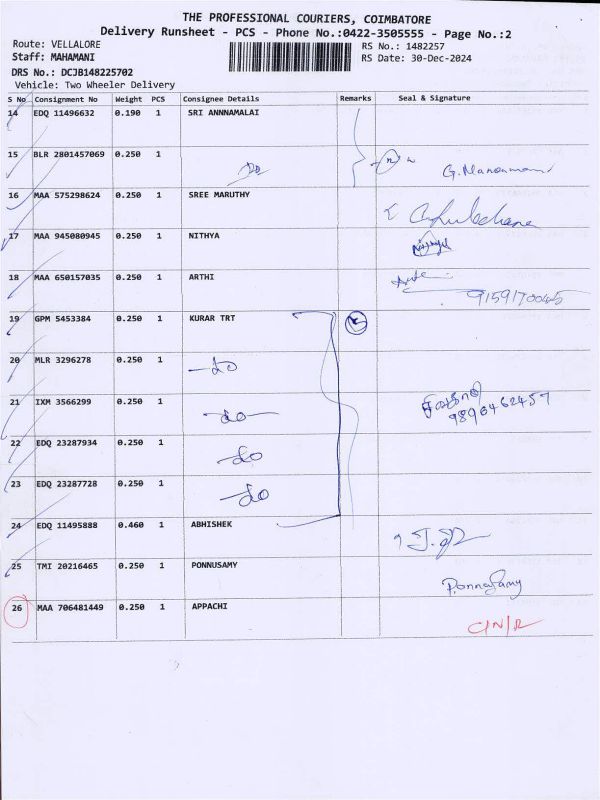 THE PROFESSIONAL COURIERS, COIMBATORE
Delivery Runsheet - PCS - Phone No.:0422-3505555 - Page No.:2
Route: VELLALORE RS No.: 1482257
Staff: MAHAMANI RS Date: 30-Dec-2024
DRS No.: DCJB148225702
Vehicle: Two Wheeler Delivery
S No Consignment No Weight PCS Consignee Details Remarks Seal & Signature
14 EDQ 11496632 0.190 1 SRI ANNNAMALAI
15 BLR 2801457069 0.250 1 Do
16 MAA 575298624 0.250 1 SREE MARUTHY
17 MAA 945080945 0.250 1 NITHYA
18 MAA 650157035 0.250 1 ARTHI
9159170045
19 GPM 5453384 0.250 1 KURAR TRT
20 MLR 3296278 0.250 1 -do
21 IXM 3566299 0.250 1 -do-
9896462457
22 EDQ 23287934 0.250 1 -do
23 EDQ 23287728 0.250 1 -do
24 EDQ 11495888 0.460 1 ABHISHEK
25 TMI 20216465 0.250 1 PONNUSAMY Ponnusamy
26 MAA 706481449 0.250 1 APPACHI C/N/R